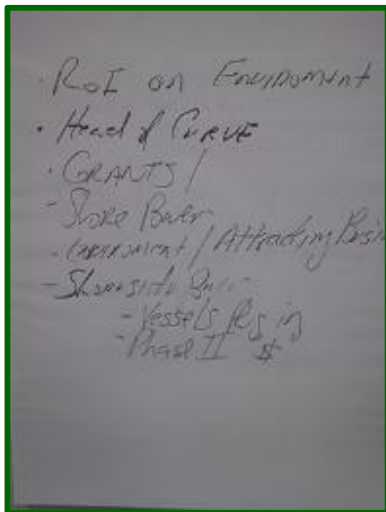 · RoI on Enviroment
· Head of CURVE
· GRANTS /
- Shore Power
- Enviroment / Attracting Busin
- Shoreside
- Vessels Plug in
- Phase II $